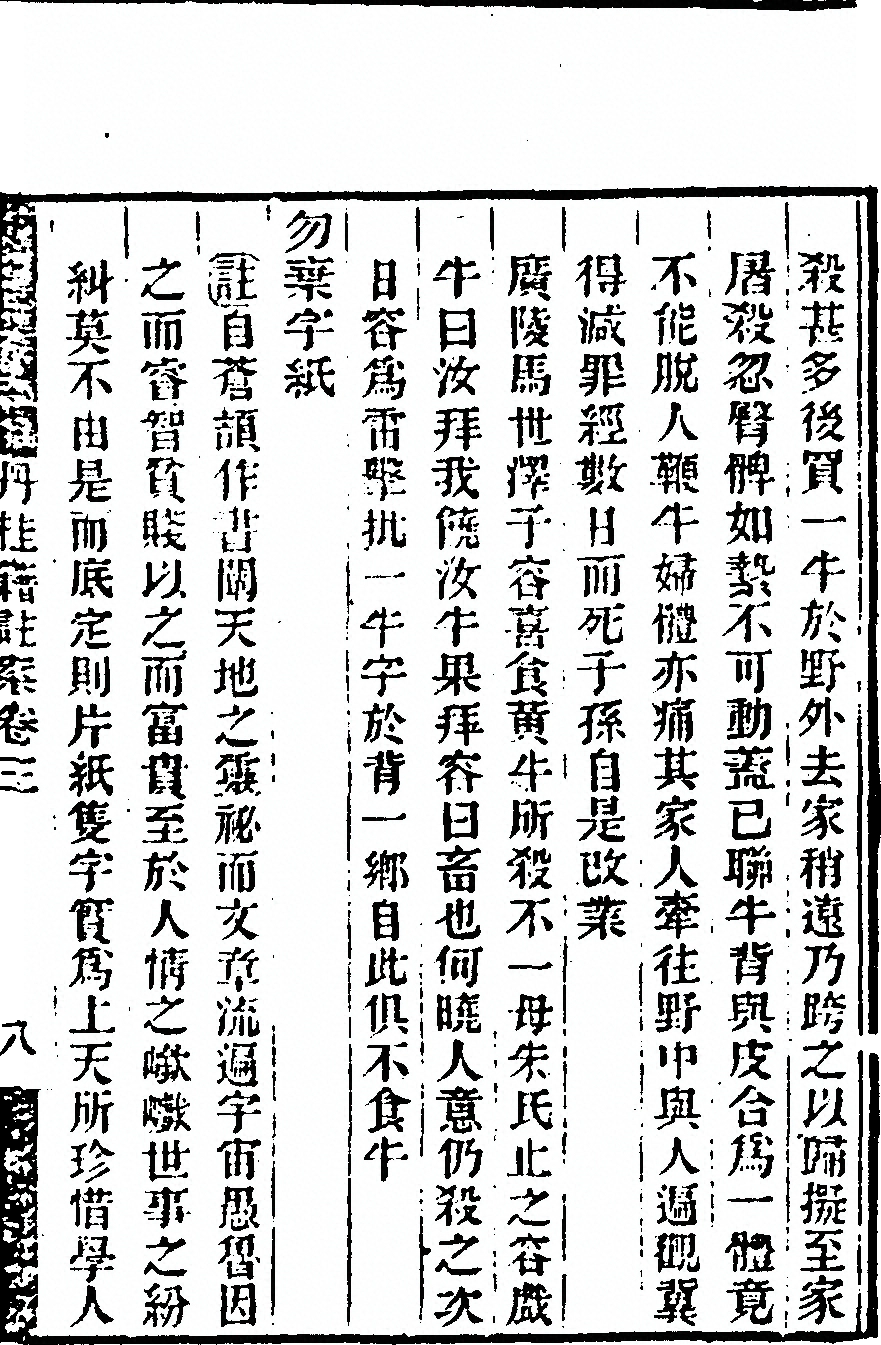 殺甚多後買一牛於野外去家稍遠乃跨之以歸擬至家
屠殺忽臀髀如縶不可動蓋已聯牛背與皮合爲一體竟
不能脫人鞭牛婦體亦痛其家人牽往野中與人遍觀冀
得减罪經數日而死子孫自是改業
廣陵馬世澤子容喜食黄牛所殺不一母朱氏止之容戲
牛曰汝拜我饒汝牛果拜容曰畜也何曉人意仍殺之次
日容爲雷擊批一牛字於背一鄉自此俱不食牛
勿棄字紙
註自蒼頡作書闡天地之靈祕而文章流遍宇宙愚智因
之而睿智貧賤以之而富貴至於人情之 世事之紛
糾莫不由是而底定則片紙隻字實爲上天所珍惜學人
丹桂籍註案卷三
八